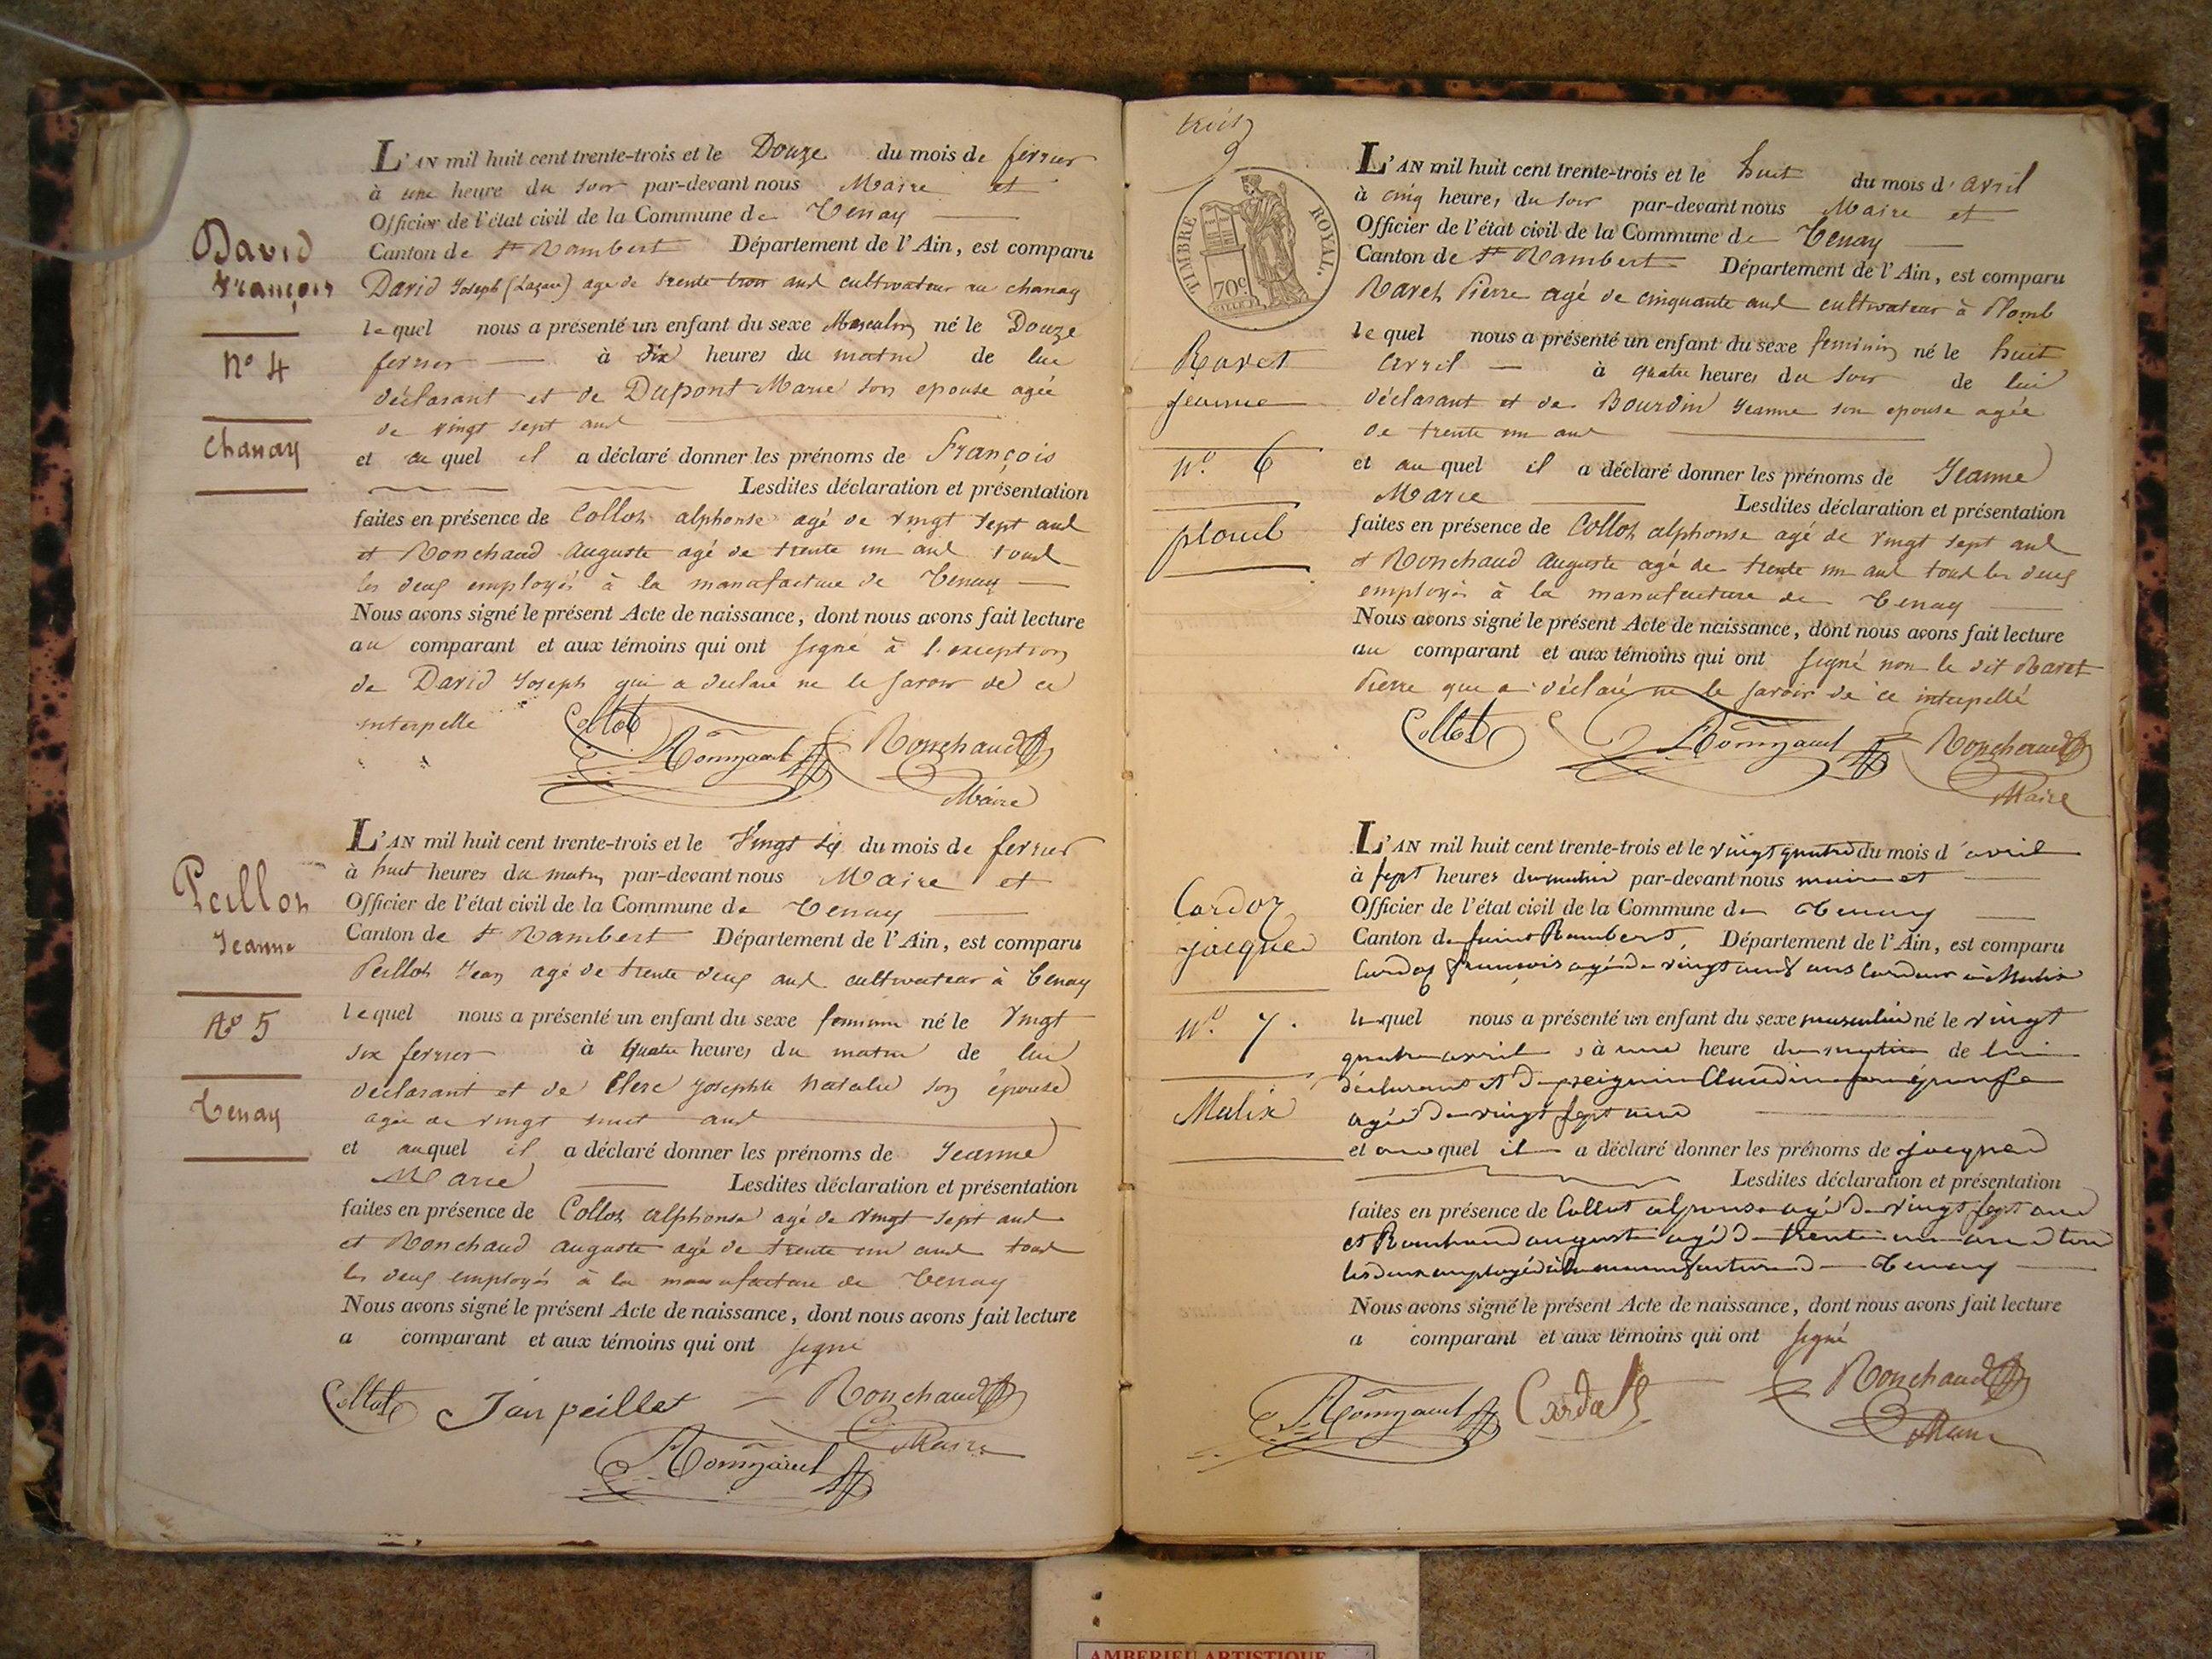 David
François
N° 4
Chanay
L'AN mil huit cent trente-trois et le Douze du mois de fevrier
à une heure du soir par-devant nous Maire et
Officier de l'état civil de la Commune de Tenay
Canton de St Rambert Département de l'Ain, est comparu
David Joseph (Lazare) agé de trente trois ans cultivateur au chanay
lequel nous a présenté un enfant du sexe Masculin né le Douze
fevrier à dix heures du matin de lui
déclarant et de Dupont Marie son epouse agée
de vingt sept ans
et au quel il a déclaré donner les prénoms de François
Lesdites déclaration et présentation
faites en présence de Collot alphonse agé de vingt sept ans
et Ronchaud Auguste agé de trente un ans tous
les deux employés à la manufacture de Tenay
Nous avons signé le présent Acte de naissance, dont nous avons fait lecture
au comparant et aux témoins qui ont signé à l'exception
de David Joseph qui a declaré ne le savoir de ce
interpelle
Collot
Ronchaud
Maire
Peillot
Jeanne
N° 5
Tenay
L'AN mil huit cent trente-trois et le Vingt six du mois de fevrier
à huit heures du matin par-devant nous Maire et
Officier de l'état civil de la Commune de Tenay
Canton de St Rambert Département de l'Ain, est comparu
Peillot Jean agé de trente deux ans cultivateur à Tenay
lequel nous a présenté un enfant du sexe feminin né le Vingt
six fevrier à quatre heures du matin de lui
déclarant et de Clerc Josephte Natalie son épouse
agée de vingt huit ans
et auquel il a déclaré donner les prénoms de Jeanne
Marie Lesdites déclaration et présentation
faites en présence de Collot alphonse agé de vingt sept ans
et Ronchaud auguste agé de trente un ans tous
les deux employés à la manufacture de Tenay
Nous avons signé le présent Acte de naissance, dont nous avons fait lecture
a comparant et aux témoins qui ont signé
Collot Jan peillet Ronchaud
Maire
trois
TIMBRE ROYAL.
70c
Ravet
jeanne
N° 6
plomb
L'AN mil huit cent trente-trois et le huit du mois d'avril
à cinq heures du soir par-devant nous Maire et
Officier de l'état civil de la Commune de Tenay
Canton de St Rambert Département de l'Ain, est comparu
Ravet Pierre agé de cinquante ans cultivateur à Plomb
lequel nous a présenté un enfant du sexe feminin né le huit
avril à quatre heures du soir de lui
déclarant et de Bourdin Jeanne son epouse agée
de trente un ans
et au quel il a déclaré donner les prénoms de Jeanne
Marie Lesdites déclaration et présentation
faites en présence de Collot alphonse agé de vingt sept ans
et Ronchaud Auguste agé de trente un ans tous les deux
employés à la manufacture de Tenay
Nous avons signé le présent Acte de naissance, dont nous avons fait lecture
au comparant et aux témoins qui ont signé non le dit Ravet
Pierre que a déclaré ne le savoir de ce interpellé
Collot
Ronchaud
Maire
Cardoz
jacques
N° 7.
Malix
L'AN mil huit cent trente-trois et le vingt quatre du mois d'avril
à sept heures du matin par-devant nous maire et
Officier de l'état civil de la Commune de Tenay
Canton de saint Rambert, Département de l'Ain, est comparu
Cardoz françois agé de vingt neuf ans Cardeur à Malix
lequel nous a présenté un enfant du sexe masculin né le vingt
quatre avril à une heure du matin de lui
déclarant et de preignin Claudine son épouse
agée de vingt sept ans
et au quel il a déclaré donner les prénoms de jacques
Lesdites déclaration et présentation
faites en présence de Collot alponse agé de vingt sept ans
et Ronchaud auguste agé de trente un ans tous
les deux employés à la manufacture de Tenay
Nous avons signé le présent Acte de naissance, dont nous avons fait lecture
a comparant et aux témoins qui ont signé
Ronchaud
Maire
AMBERIEU ARTISTIQUE